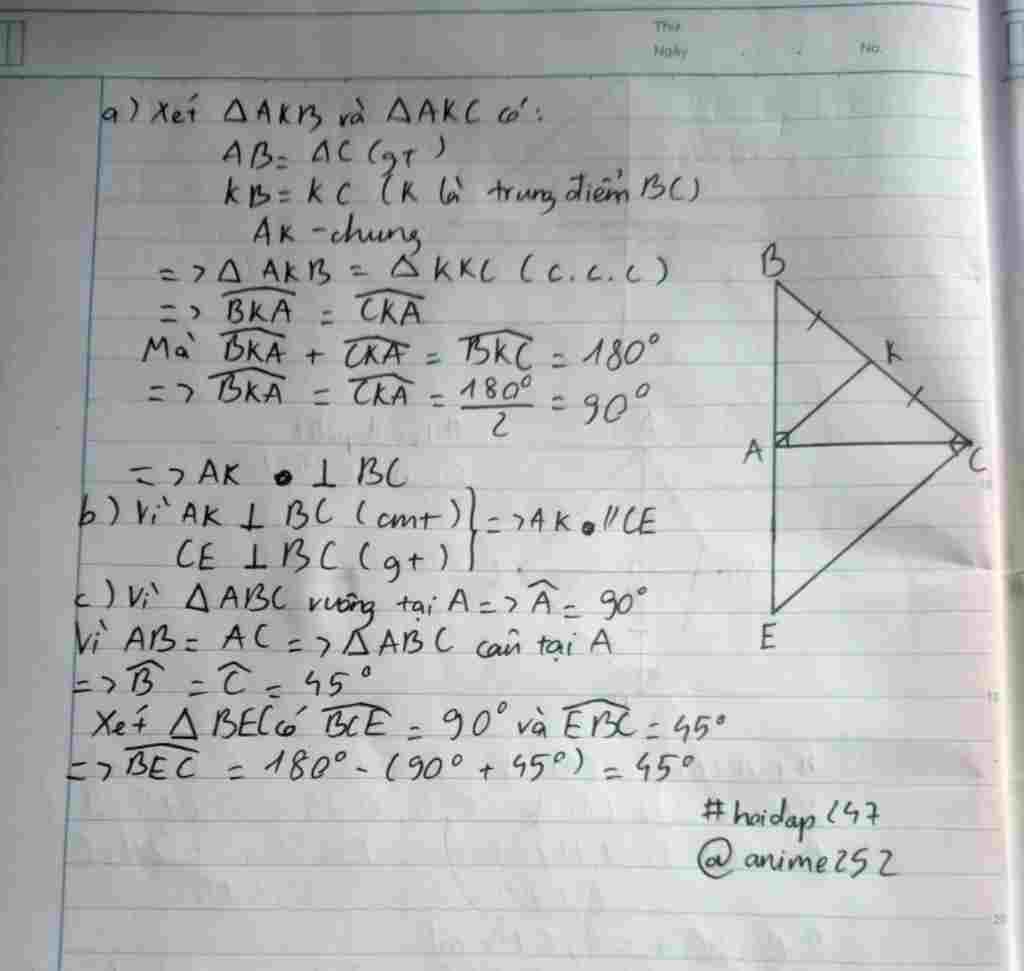 Thứ
Ngày . . No.
a) Xét ΔAKB và ΔAKC có:
AB = AC (gt)
KB = KC (K là trung điểm BC)
AK - chung
=> Δ AKB = Δ KKC (c.c.c)
=> \widehat{BKA} = \widehat{CKA}
Mà \widehat{BKA} + \widehat{CKA} = \widehat{BKC} = 180°
=> \widehat{BKA} = \widehat{CKA} = \frac{180°}{2} = 90°
=> AK ⊥ BC
b) Vì AK ⊥ BC (cmt) } => AK // CE
CE ⊥ BC (gt)
c) Vì ΔABC vuông tại A => \widehat{A} = 90°
Vì AB = AC => ΔABC cân tại A
=> \widehat{B} = \widehat{C} = 45°
Xét ΔBEC có \widehat{BCE} = 90° và \widehat{EBC} = 45°
=> \widehat{BEC} = 180° - (90° + 45°) = 45°
#hoidap247
@anime252
B
K
A
C
E